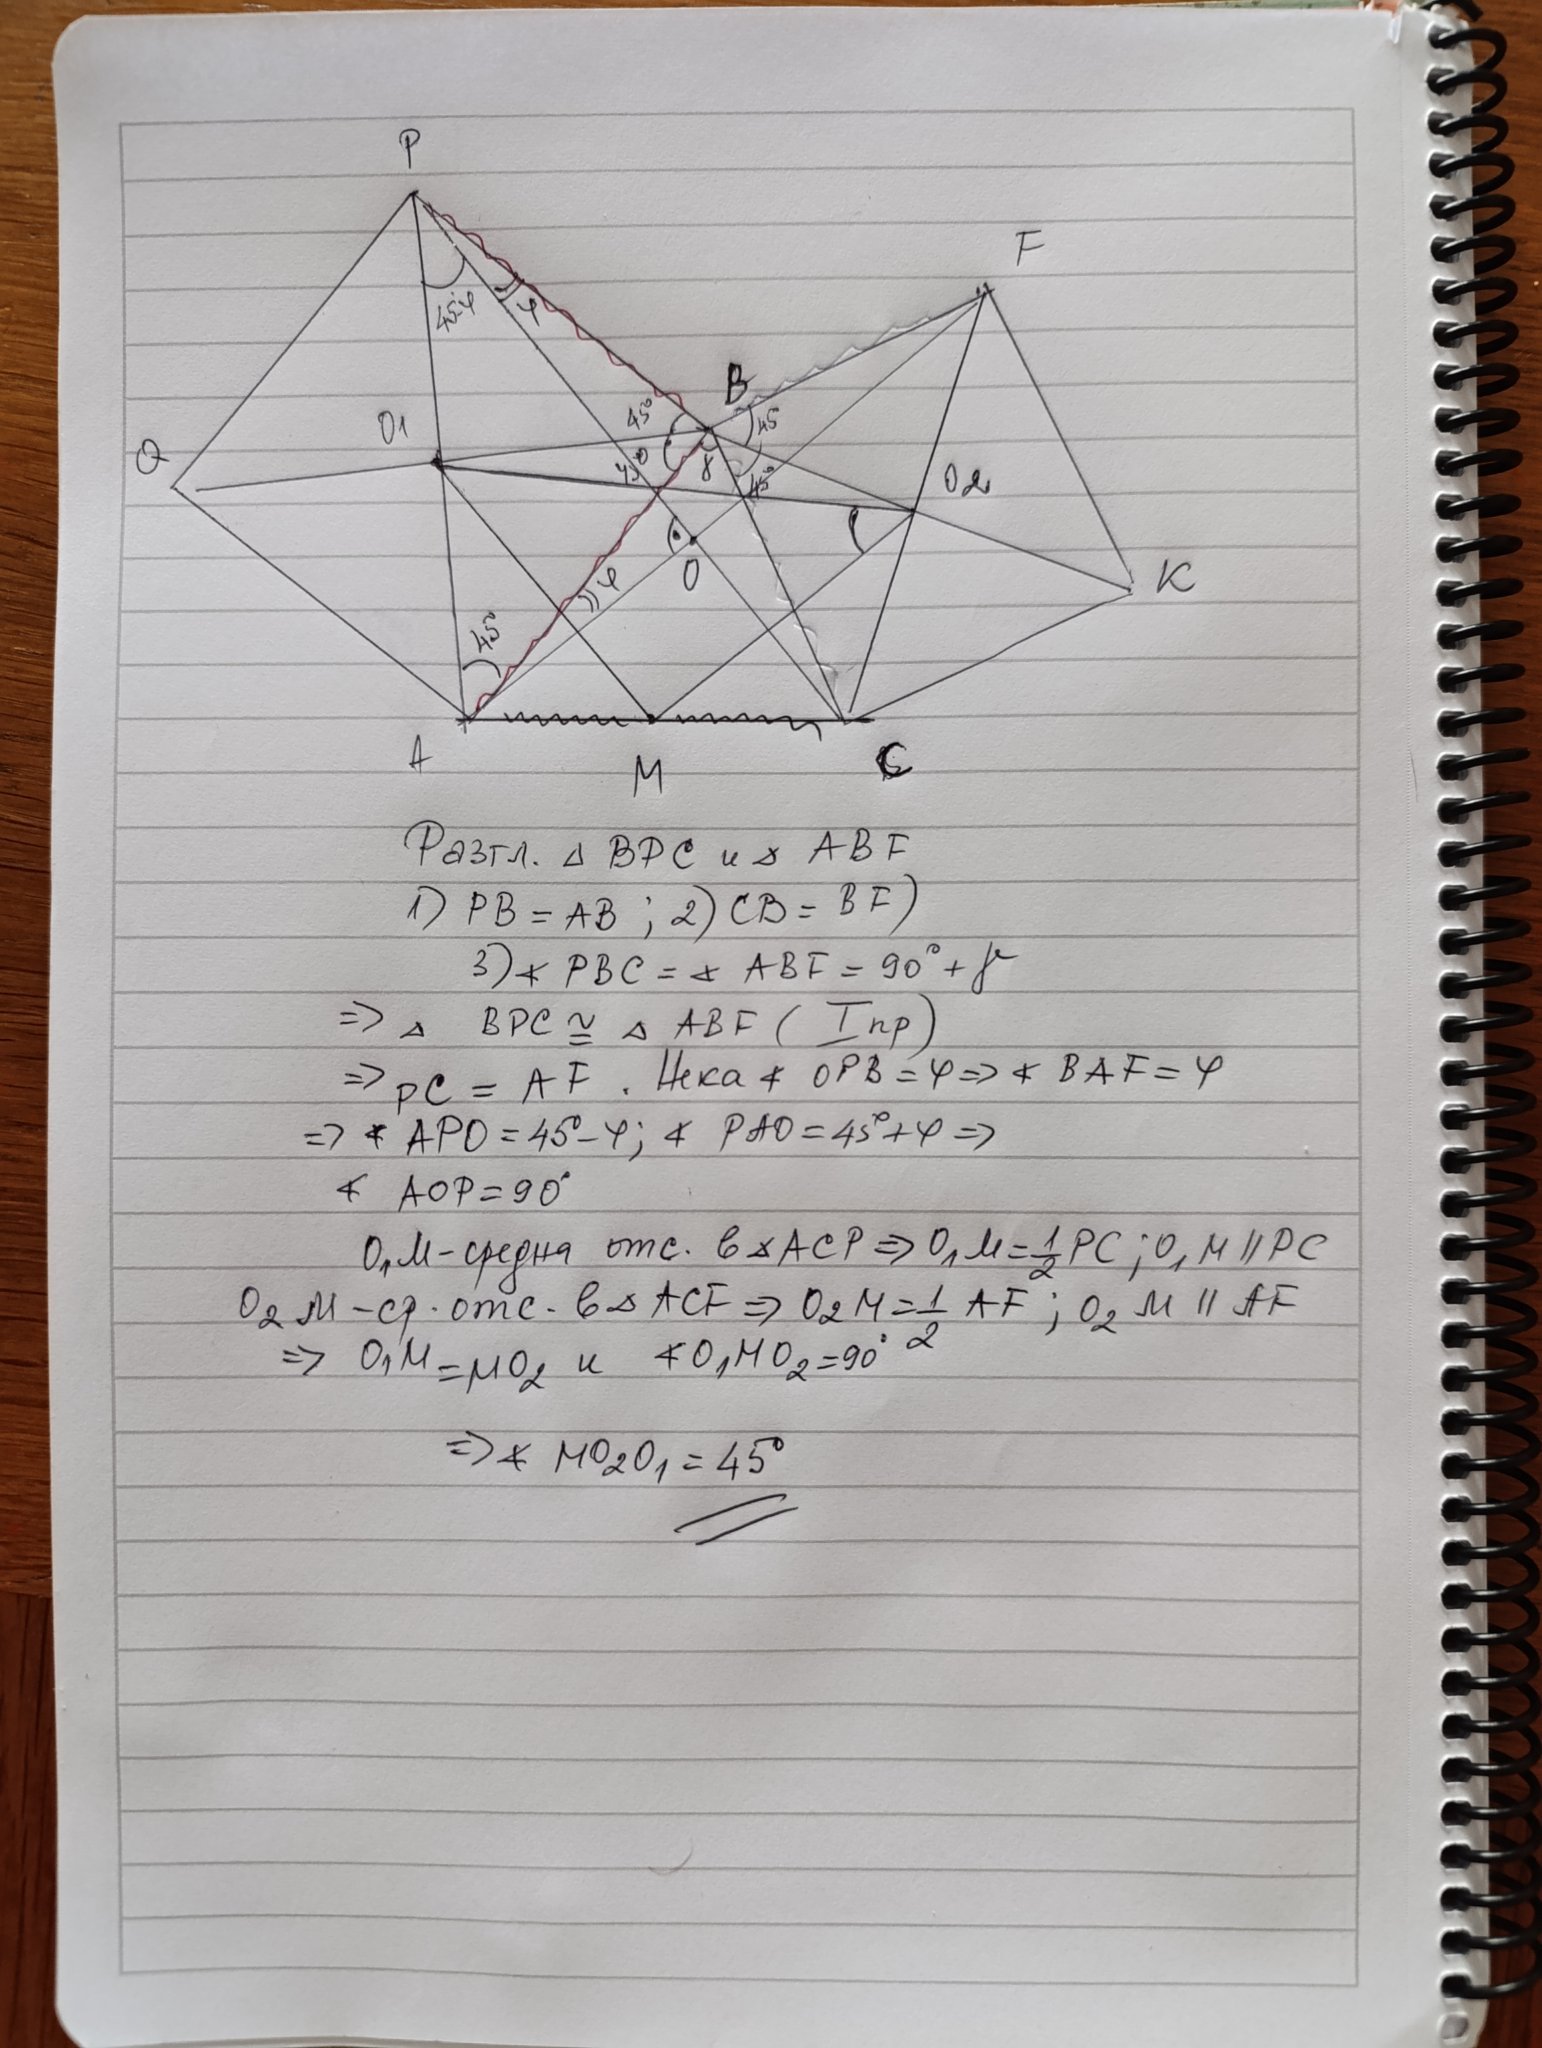 P
F
B
45°-φ
φ
45°
45
O1
Q
45°
γ
45°
O2
K
O
φ
45°
A
M
C
Разгл. △ BPC и △ ABF
1) PB = AB ; 2) CB = BF)
3) ∢ PBC = ∢ ABF = 90° + γ
=> △ BPC ≅ △ ABF ( I пр)
=> PC = AF . Нека ∢ OPB = φ => ∢ BAF = φ
=> ∢ APO = 45° - φ; ∢ PAO = 45° + φ =>
∢ AOP = 90°
O₁M - средна отс. в △ ACP => O₁M = 1/2 PC ; O₁M || PC
O₂M - ср. отс. в △ ACF => O₂M = 1/2 AF ; O₂M || AF
=> O₁M = MO₂ и ∢ O₁MO₂ = 90°
=> ∢ MO₂O₁ = 45°